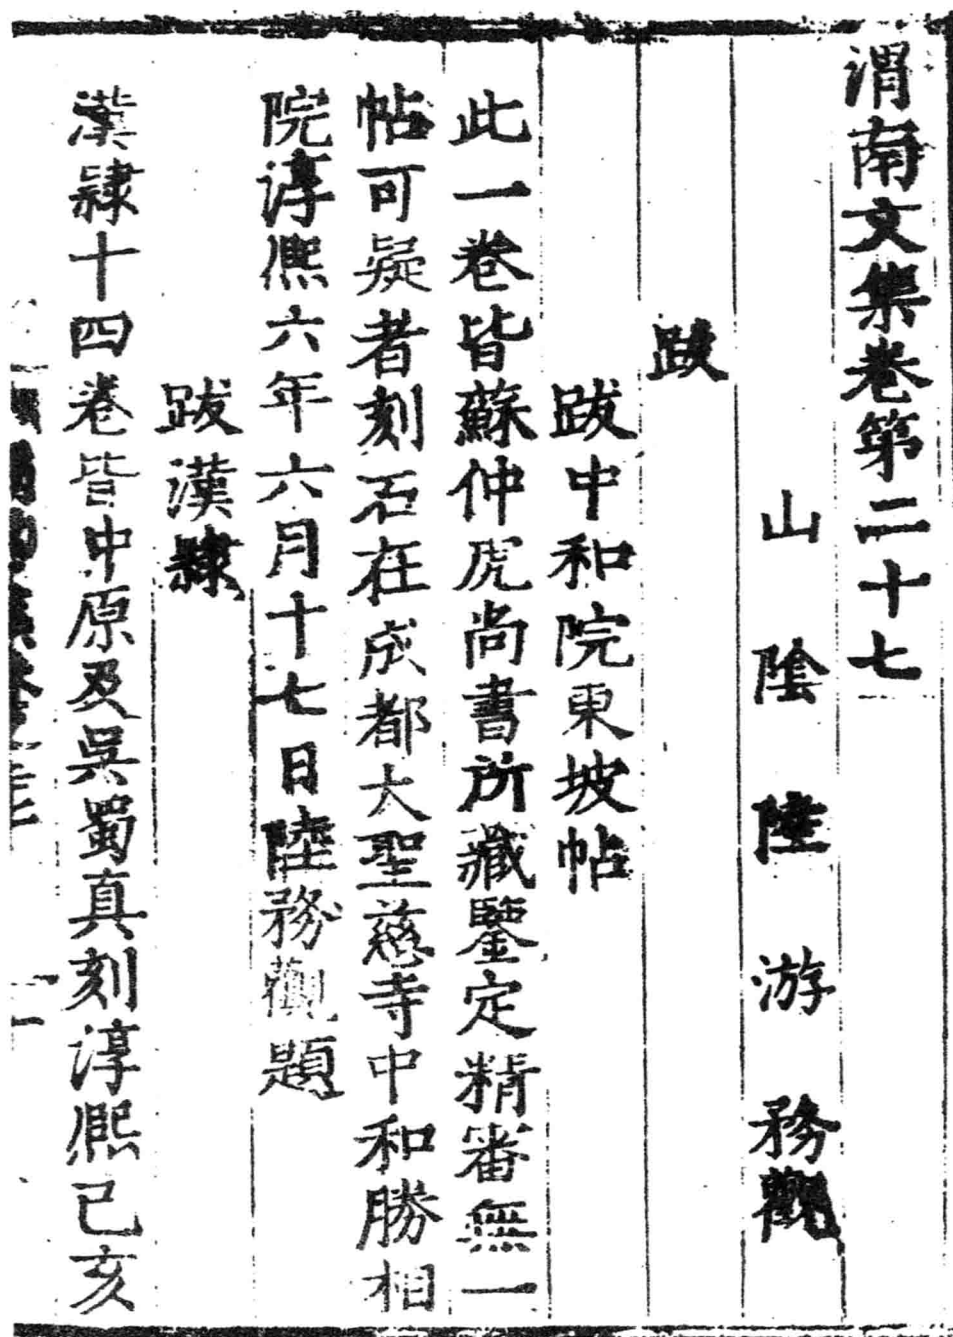 渭南文集卷第二十七
山陰陸游務觀
跋
跋中和院東坡帖
此一卷皆蘇仲虎尚書所藏鑒定精審無一
帖可疑者刻石在成都大聖慈寺中和勝相
院淳熙六年六月十七日陸務觀題
跋漢隸
漢隸十四卷皆中原及吳蜀真刻淳熙己亥